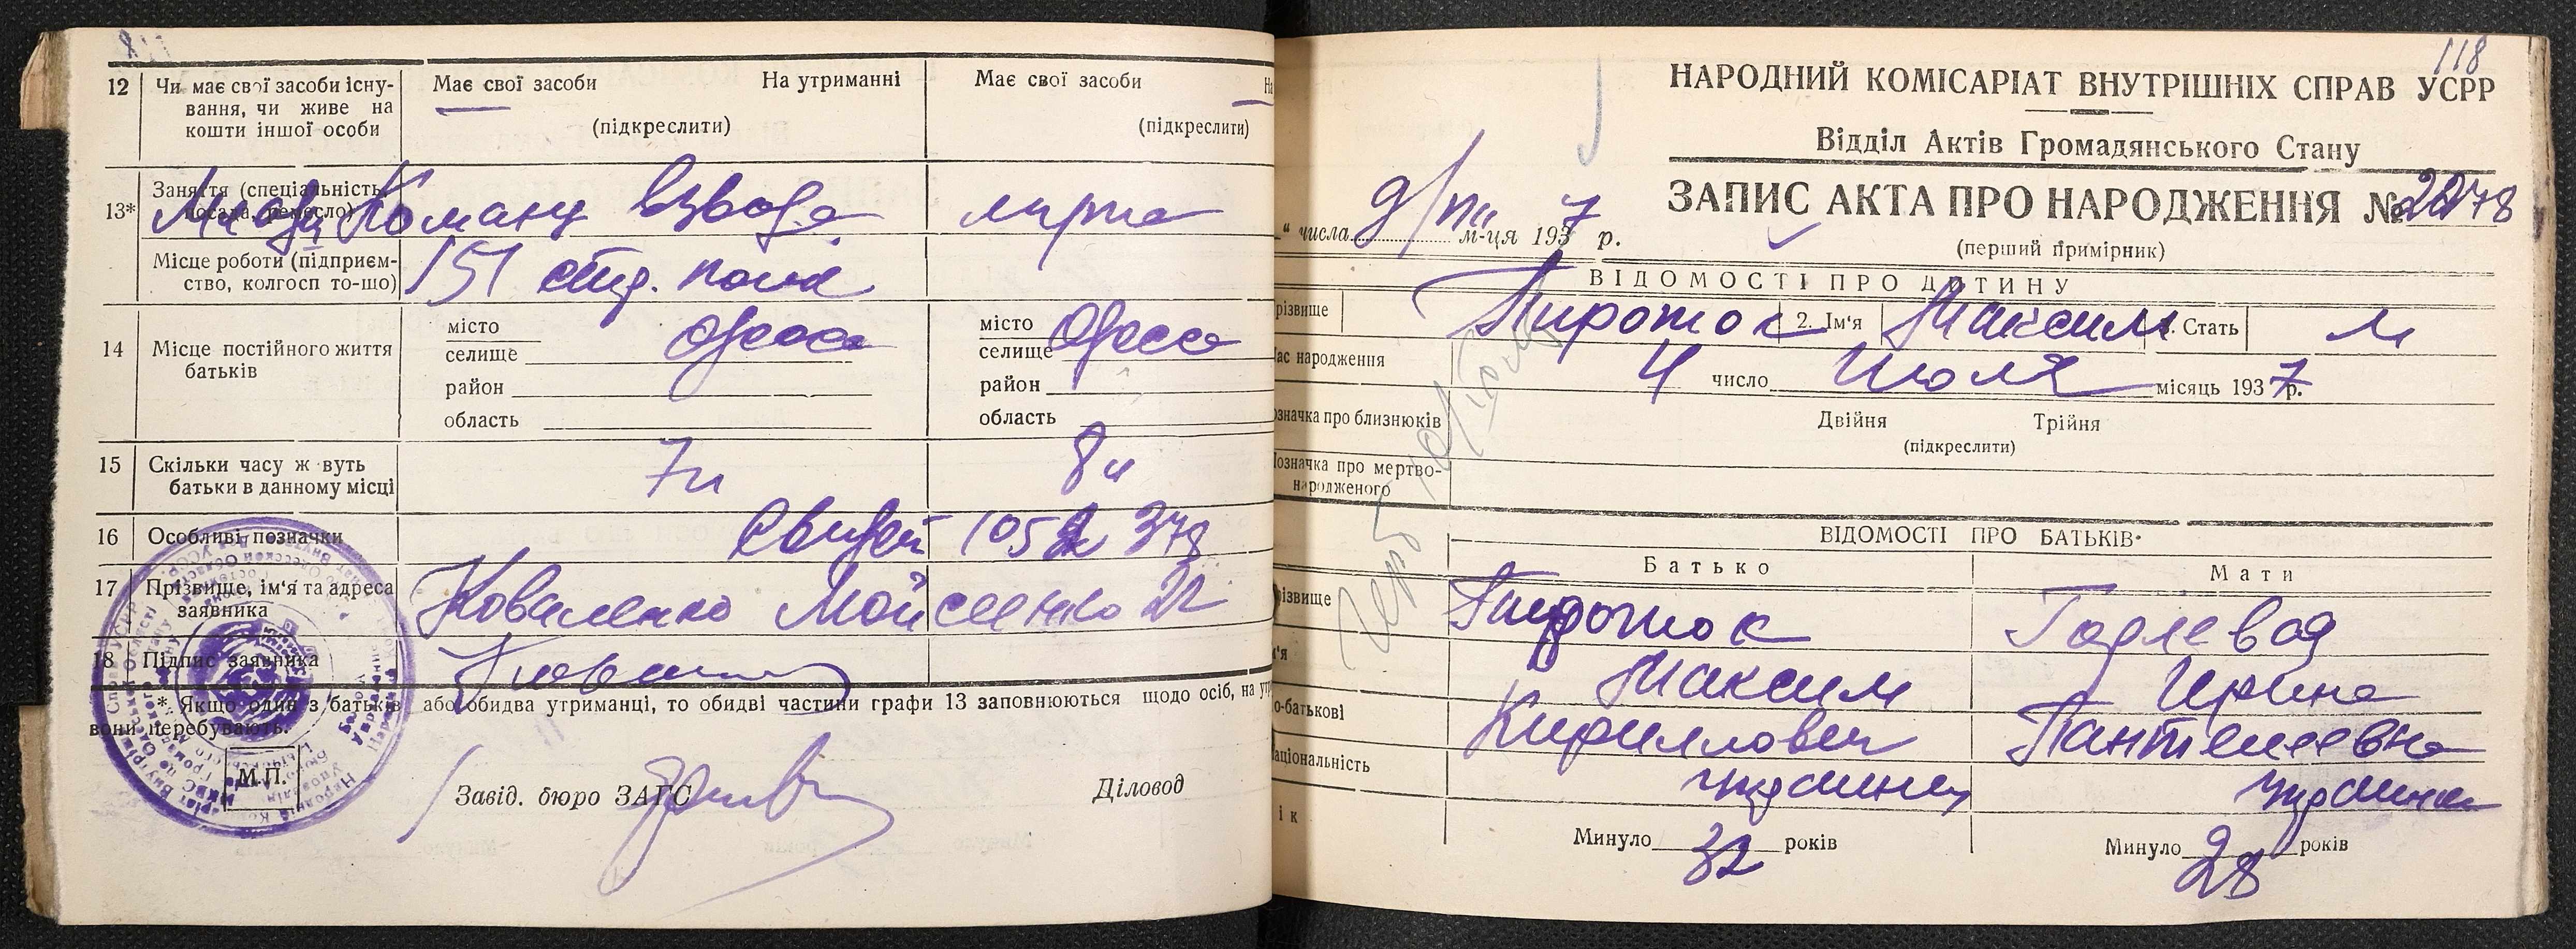 12 Чи має свої засоби існу-
вання, чи живе на
кошти іншої особи
Має свої засоби На утриманні
(підкреслити)
Має свої засоби
(підкреслити)
13* Заняття (спеціальність,
посада, ремесло)
Команд взвода
Місце роботи (підприєм-
ство, колгосп то-що)
151 стр. полк
14 Місце постійного життя
батьків
місто
селище Одесса
район
область
місто
селище Одесса
район
область
15 Скільки часу ж вуть
батьки в данному місці
7л 8л
16 Особливі позначки
17 Прізвище, ім'я та адреса
заявника
Коваленко Мойсеенко 22
18 Підпис заявника
* Якщо один з батьків або обидва утриманці, то обидві частини графи 13 заповнюються щодо осіб, на
вони перебувають.
М.П.
Завід. бюро ЗАГС Діловод
118
НАРОДНИЙ КОМІСАРІАТ ВНУТРІШНІХ СПРАВ УСРР
Відділ Актів Громадянського Стану
ЗАПИС АКТА ПРО НАРОДЖЕННЯ №
(перший примірник)
" числа 9/VII м-ця 1937 р.
ВІДОМОСТІ ПРО ДИТИНУ
різвище Пирожок 2. Ім'я Максим 3. Стать м
ас народження 4 число Июля місяць 1937 р.
означка про близнюків
Двійня Трійня
(підкреслити)
означка про мертво-
народженого
ВІДОМОСТІ ПРО БАТЬКІВ
Батько Мати
різвище Пирожок
м'я Максим Ирина
о-батькові Кириллович Пантелеевна
аціональність украинец украинка
ік
Минуло 32 років
Минуло 28 років